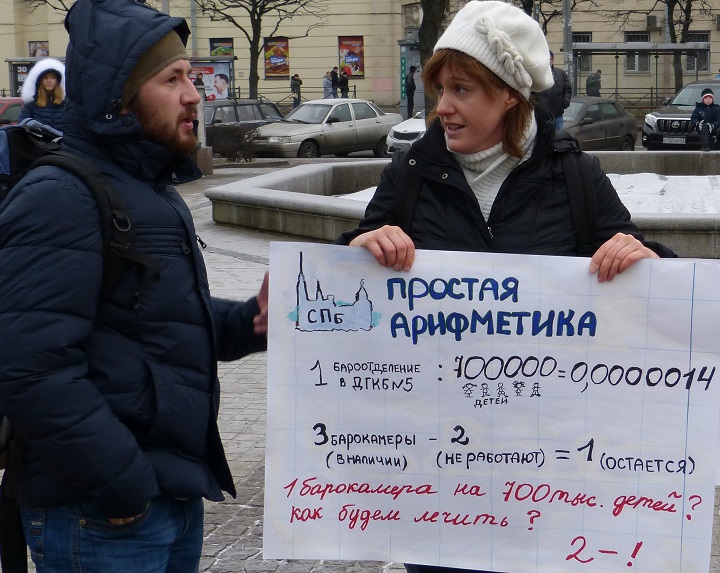 СПб
ПРОСТАЯ
АРИФМЕТИКА
1 БАРООТДЕЛЕНИЕ В ДГКБ№5 : 700000 = 0,0000014
ДЕТЕЙ
3 БАРОКАМЕРЫ - 2 = 1 (ОСТАЕТСЯ)
(В НАЛИЧИИ) (НЕ РАБОТАЮТ)
1 барокамера на 700 тыс. детей?
как будем лечить?
2-!
30